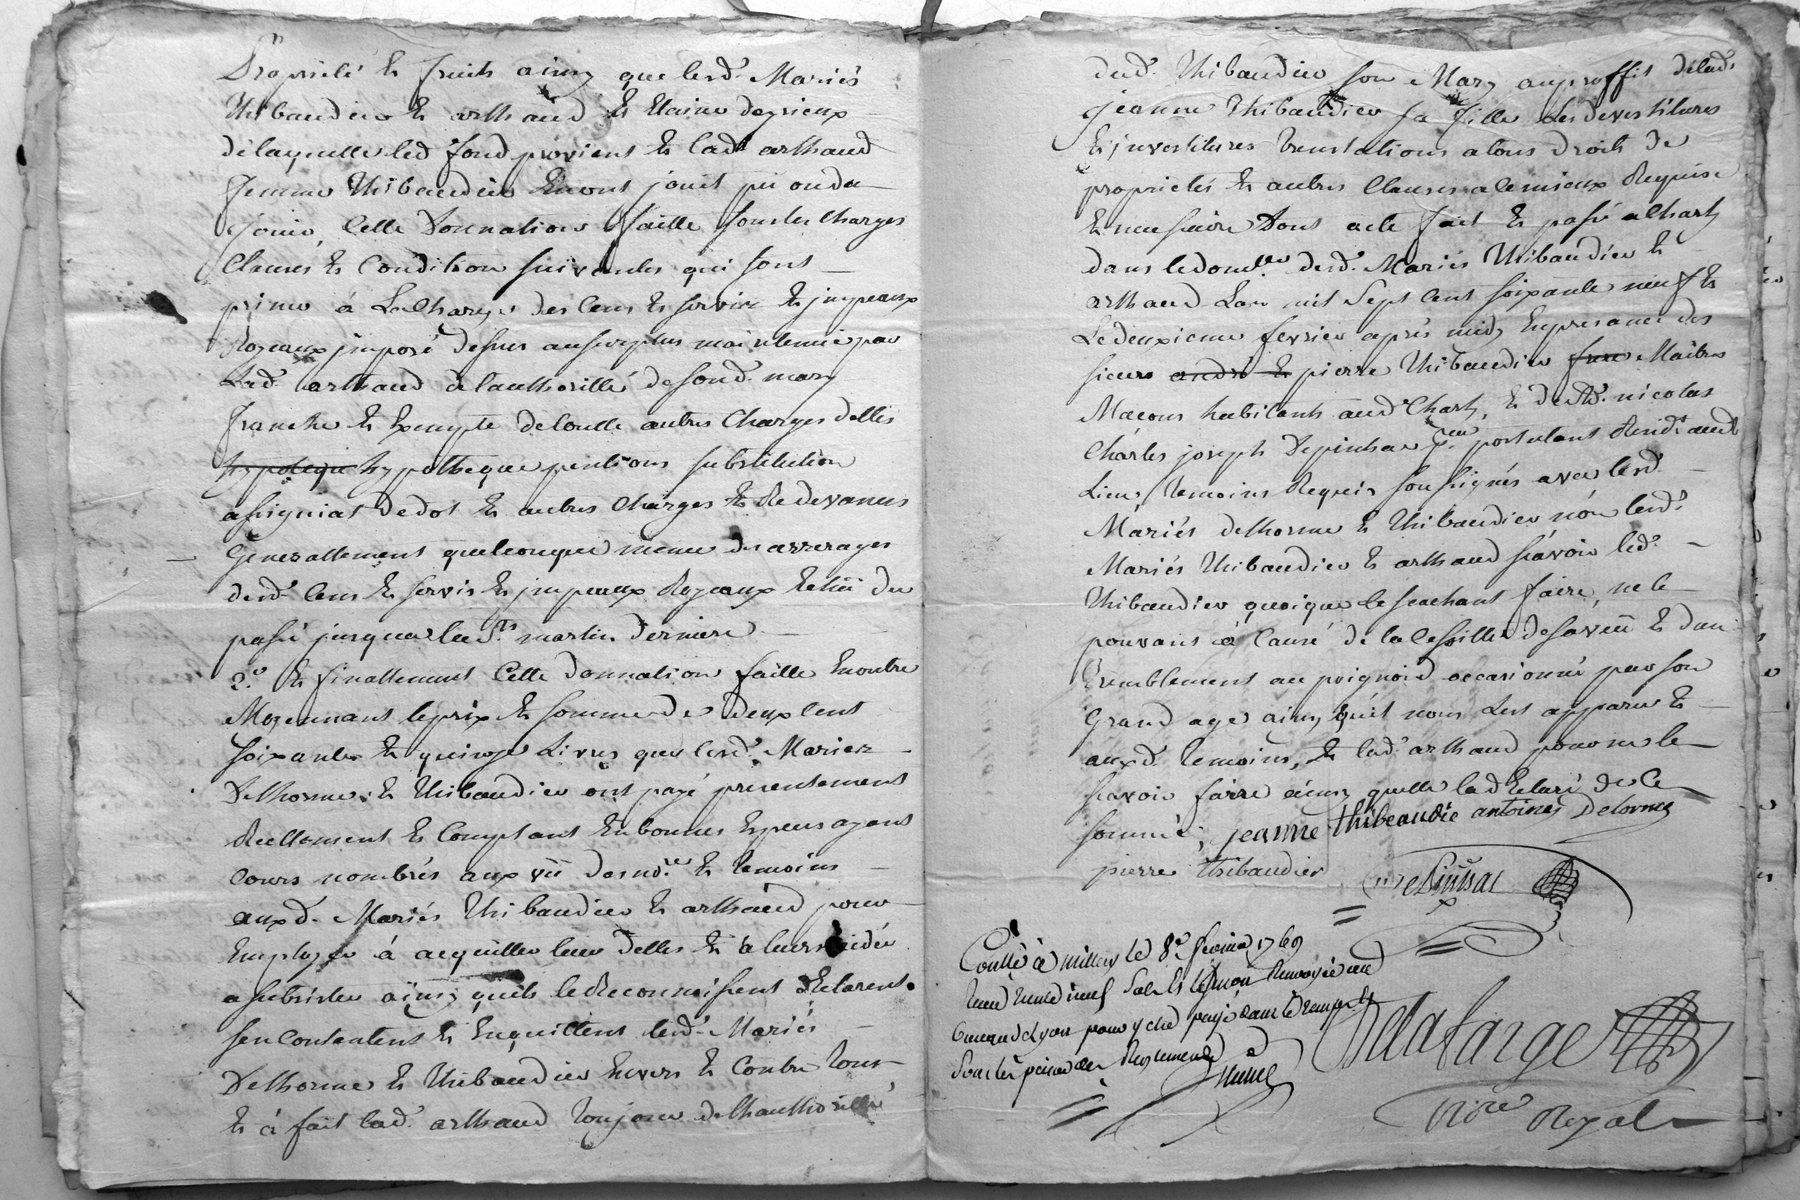 Proprieté et fruits ainsy que lesd. Mariés
Thibaudier et arthaud et Claine
de laquelle led. fond provient et lad. arthaud
femme Thibaudier en ont jouit pû ou du
jouir, Cette Donnation faitte sous les Charges
Clauses et Condition suivantes qui sont
primo à La Charge des Cens et servix et impeaux
Royeaux imposé dessus ausurplus maintenüe par
Lad. arthaud de l'authoritté de sond. mary
franche et Exempte de toutte autres Charges dettes
hypoteque hypotheque pentions substitution
assigniat de dot et autres Charges et Redevances
Generallement quelconques meme des arrerages
desd. Cens et servis et impeaux Royeaux Echû du
passé jusqua la St. martin derniere
2.º et finallement Cette donnation faitte En outre
Moyennant le prix et somme de deux Cent
soixante et quinze Livres que lesd. Mariez
Delhorme et Thibaudier ont payé presentement
Reellement et Comptant En bonnes Especes ayant
Cours nombrés aux vû des no.re et temoins
auxd. Mariés Thibaudier et arthaud pour
Employer à acquitter leur dettes et a leurs aider
a subsister ainsy quils le Reconnoissent declarent
sen Contentent et Enquittent lesd. Mariés
Delhorme et Thibaudier Envers et Contre tous
et à fait lad. arthaud toujour de lhauthoritté
dud. Thibaudier son Mary auproffit de lad.
jeanne Thibaudier sa fille des devestitures
et investitures translations a tous droits de
proprietés et autres Clauses a ce mieux Requise
et necessaire Dont acte fait et passé a Charly
dans le dom.lle desd. Mariés Thibaudier et
arthaud Lan mil Sept Cent soixante neuf et
Le deuxieme fevrier après midy En presance des
sieurs andré et pierre Thibaudier frere Maitres
Macons habitants aud. Charly, et de Me. nicolas
Charles joseph Depinhac pcur. postulant Resid.t aud.
Lieu temoins Requis soussignés avec lesd.
Mariés delhorme et Thibaudier nón lesd.
Mariés Thibaudier et arthaud sçavoir led.
Thibaudier quoique le scachant faire, ne le
pouvans à Cause de la Cessitté de sa veüe et d'un
tremblement au poignoid occasionné par son
Grand age ainsy quil nous Lest apparu et
auxd. temoins, et lad. arthaud pour ne le
scavoir faire ainsy quelle la declaré de Ce
sommée; jeanne thibeaudie antoine Delorme
pierre thibaudier
Depinhac
Conllé à millery le 8e. fevrier 1769
Reçu trente neuf sols et Lesmon Renvoyée au
Bureau de Lyon pour y etre payé dans le temps et
Sous les peines des Reglements
Delafarge
No.re Royal